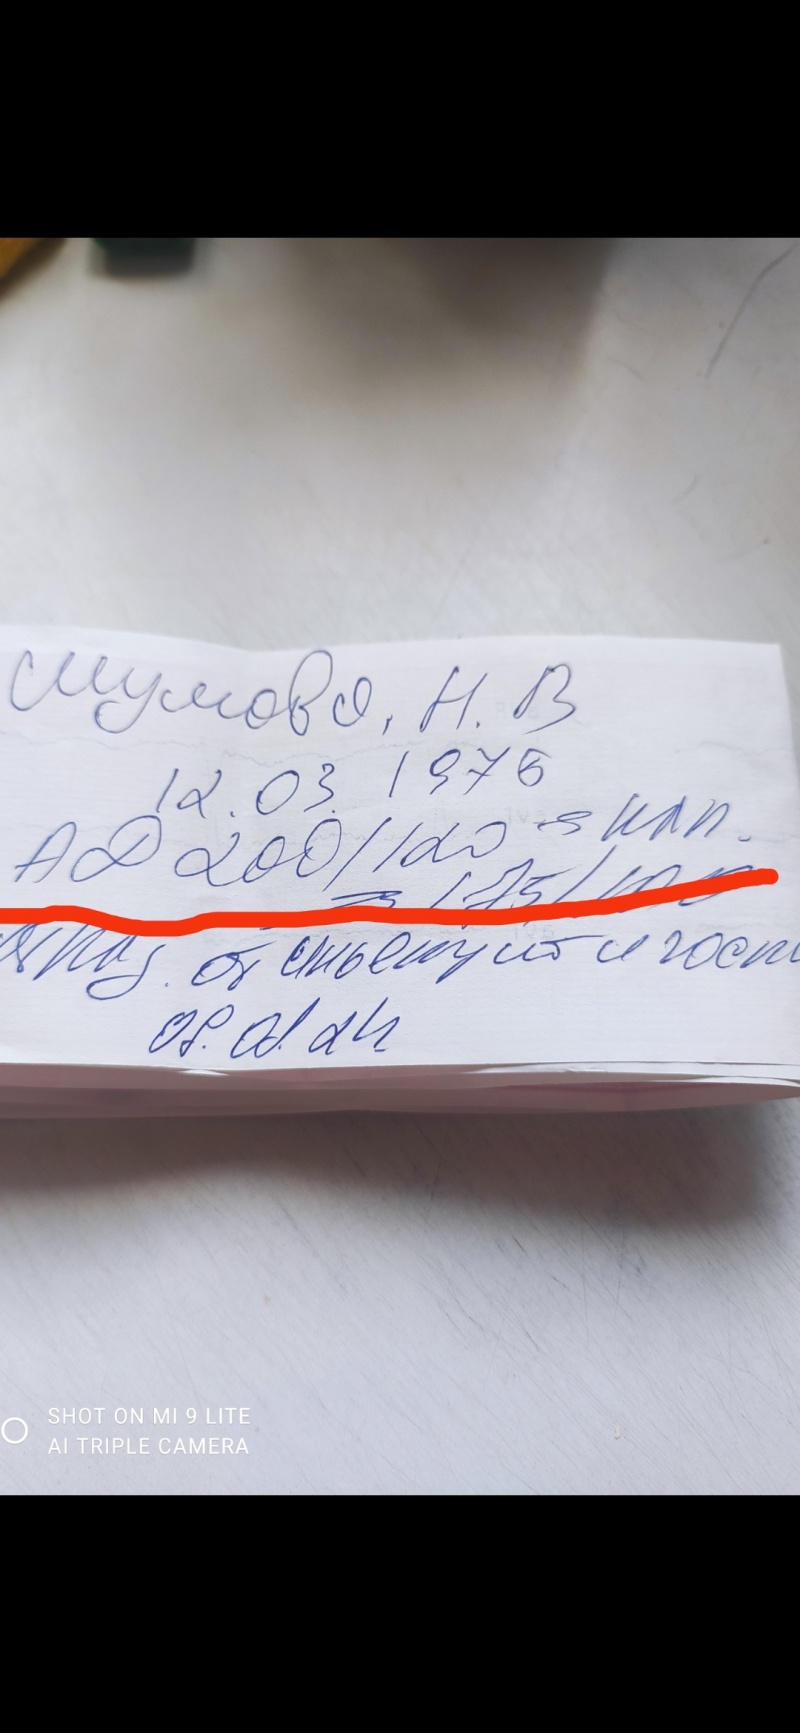 Шумова, Н. В
12.03.1976
АД 200/120 → кап.
→ 175/100
от и госп
08.01.24
SHOT ON MI 9 LITE
AI TRIPLE CAMERA